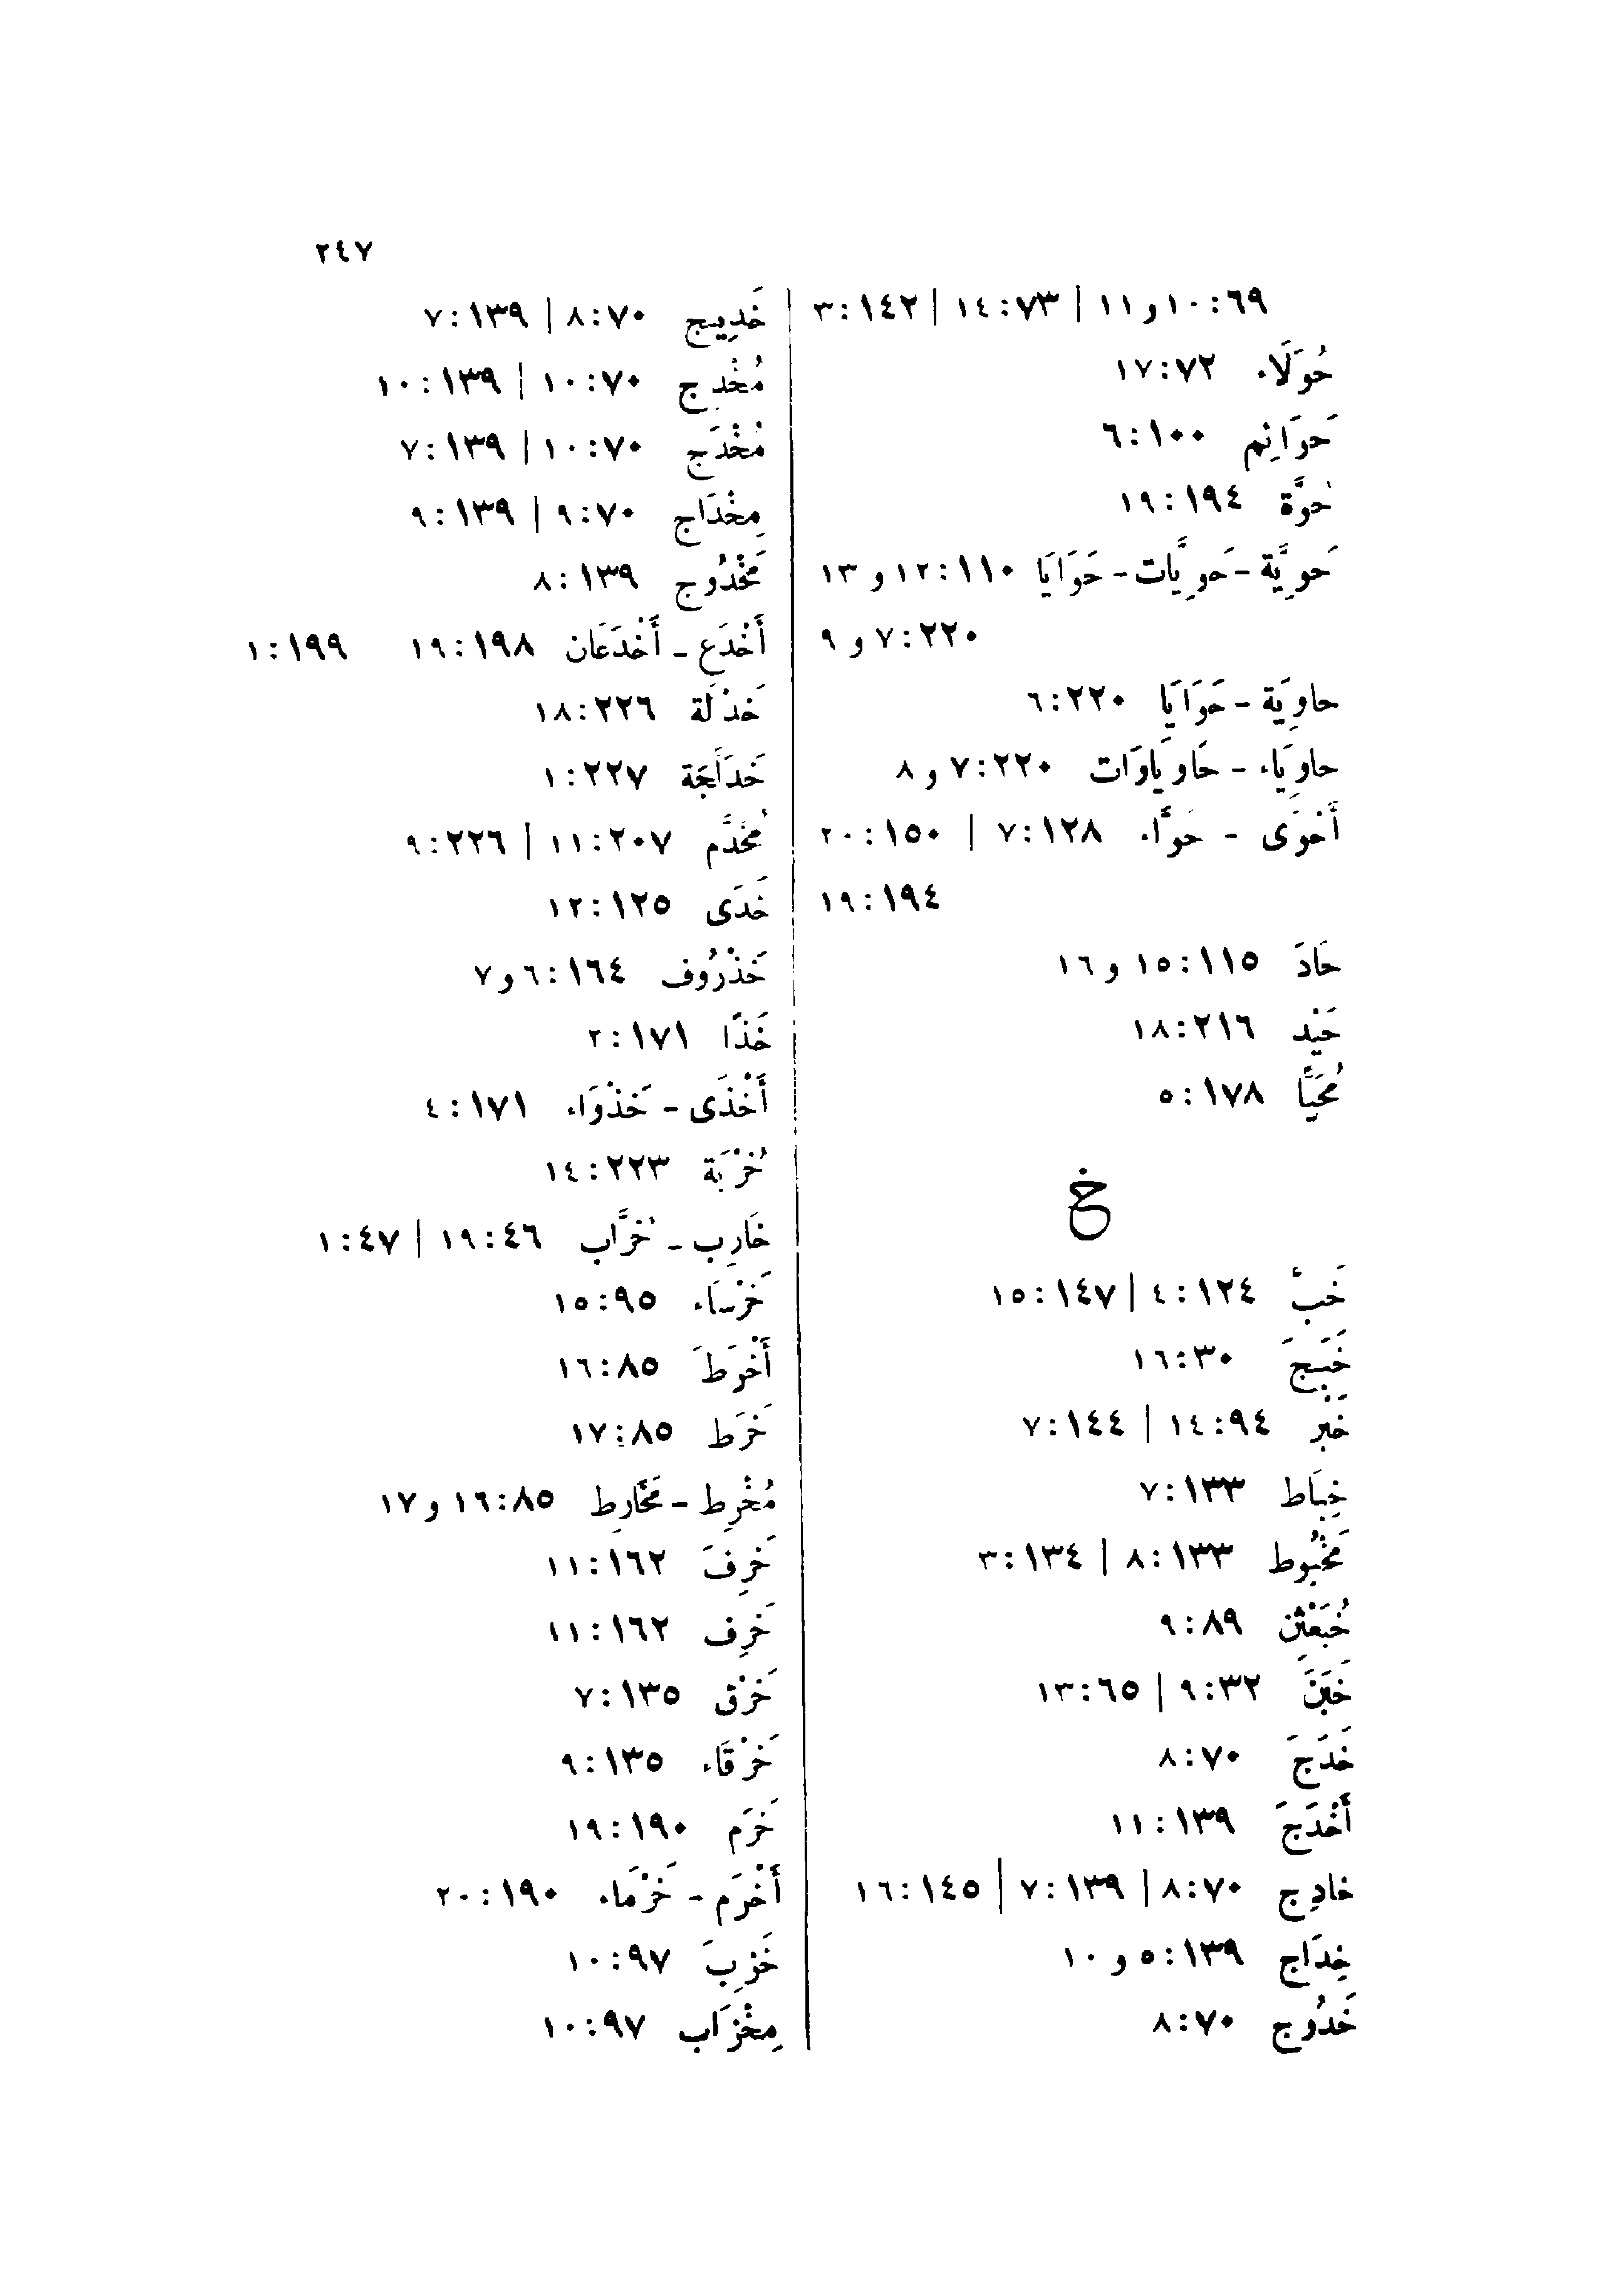 ٢٤٧
٦٩:١٠ و ١١ | ٧٣:١٤ | ١٤٢:٣
حُوَلَاء ٧٢:١٧
حَوَائِم ١٠٠:٦
حُوَّة ١٩٤:١٩
حَوِيَّة - حَوِيَّات - حَوَايَا ١١٠:١٢ و ١٣
٢٢٠:٧ و ٩
حاوِيَة - حَوَايَا ٢٢٠:٦
حاوِيَاء - حَاوِيَاوَات ٢٢٠:٧ و ٨
أَحْوَى - حَوَّاء ١٢٨:٧ | ١٥٠:٢٠
١٩٤:١٩
حَادَ ١١٥:١٥ و ١٦
حَيْد ٢١٦:١٨
مُحَيَّا ١٧٨:٥
خ
خَبْ ١٢٤:٤ | ١٤٧:١٥
خَبَجَ ٣٠:١٦
خَبْر ٩٤:١٤ | ١٤٤:٧
خِبَاط ١٣٣:٧
مَخْبُوط ١٣٣:٨ | ١٣٤:٣
خُبَعْثِن ٨٩:٩
خَبَنَ ٣٢:٩ | ٦٥:١٣
خَدَجَ ٧٠:٨
أَخْدَجَ ١٣٩:١١
خادِج ٧٠:٨ | ١٣٩:٧ | ١٤٥:١٦
خِدَاج ١٣٩:٥ و ١٠
خَدُوج ٧٠:٨
خَدِيج ٧٠:٨ | ١٣٩:٧
مُخْدِج ٧٠:١٠ | ١٣٩:١٠
مُخْدَج ٧٠:١٠ | ١٣٩:٧
مِخْدَاج ٧٠:٩ | ١٣٩:٩
مَخْدُوج ١٣٩:٨
أَخْدَع - أَخْدَعَان ١٩٨:١٩ ١٩٩:١
خَدْلَة ٢٢٦:١٨
خَدَلَّجَة ٢٢٧:١
مُخَدَّم ٢٠٧:١١ | ٢٢٦:٩
خَدَى ١٢٥:١٢
خَذْرُوف ١٦٤:٦ و ٧
خَذًا ١٧١:٢
أَخْذَى - خَذْوَاء ١٧١:٤
خُرْبَة ٢٢٣:١٤
خَارِب - خُرَّاب ٤٦:١٩ | ٤٧:١
خَرْسَاء ٩٥:١٥
أَخْرَطَ ٨٥:١٦
خَرَط ٨٥:١٧
مُخْرِط - مَخَارِط ٨٥:١٦ و ١٧
خَرِفَ ١٦٢:١١
خَرِف ١٦٢:١١
خَرْق ١٣٥:٧
خَرْقَاء ١٣٥:٩
خَرَم ١٩٠:١٩
أَخْرَم - خَرْمَاء ١٩٠:٢٠
خَزِبَ ٩٧:١٠
مِخْزَاب ٩٧:١٠